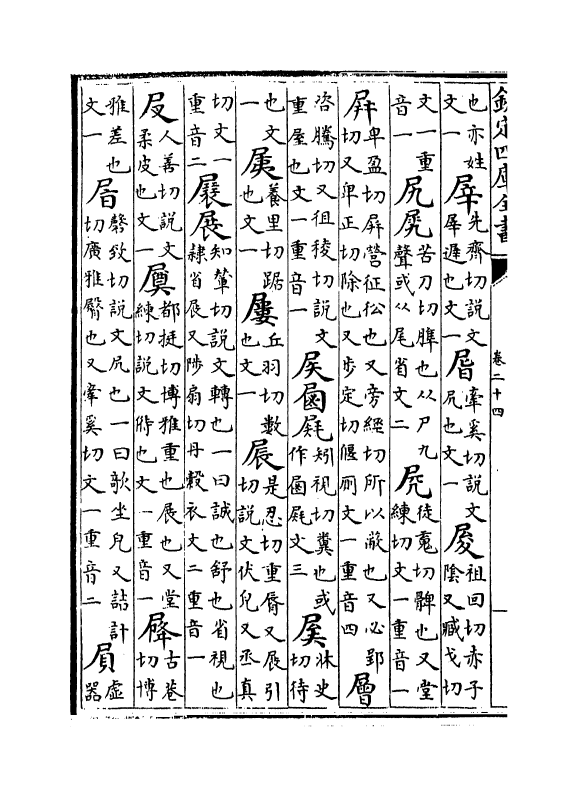 欽定四庫全書 卷二十四
也亦姓文一 犀 先齊切說文犀遲也文一 㞓 牽奚切說文尻也文一 㞜 祖回切赤子陰又臧戈切
文一重音一 尻 苦刀切脾也从尸九聲或从尾省文二 徒䰟切髀也又堂練切文一重音一
屏 卑盈切屏營征忪也又旁經切所以蔽也又必郢切又卑正切除也又步定切偃廁文一重音四 層
咨騰切又徂稜切說文重屋也文一重音一 矧視切糞也或作文三 牀史切待
也文一 養里切踞也文一 屢 丘羽切數也文一 屒 是忍切重脣又展引切說文伏皃又丞真
切文一重音二 展 知輦切說文轉也一曰誠也舒也省視也隸省展又陟扇切丹縠衣文二重音一
㞋 人善切說文柔皮也文一 都挺切博雅重也展也又堂練切說文偫也文一重音一 古巷切博
雅差也文一 㞒 馨致切說文尻也一曰歌坐皃又詰計切廣雅臀也又牽奚切文一重音二 屓 虛器